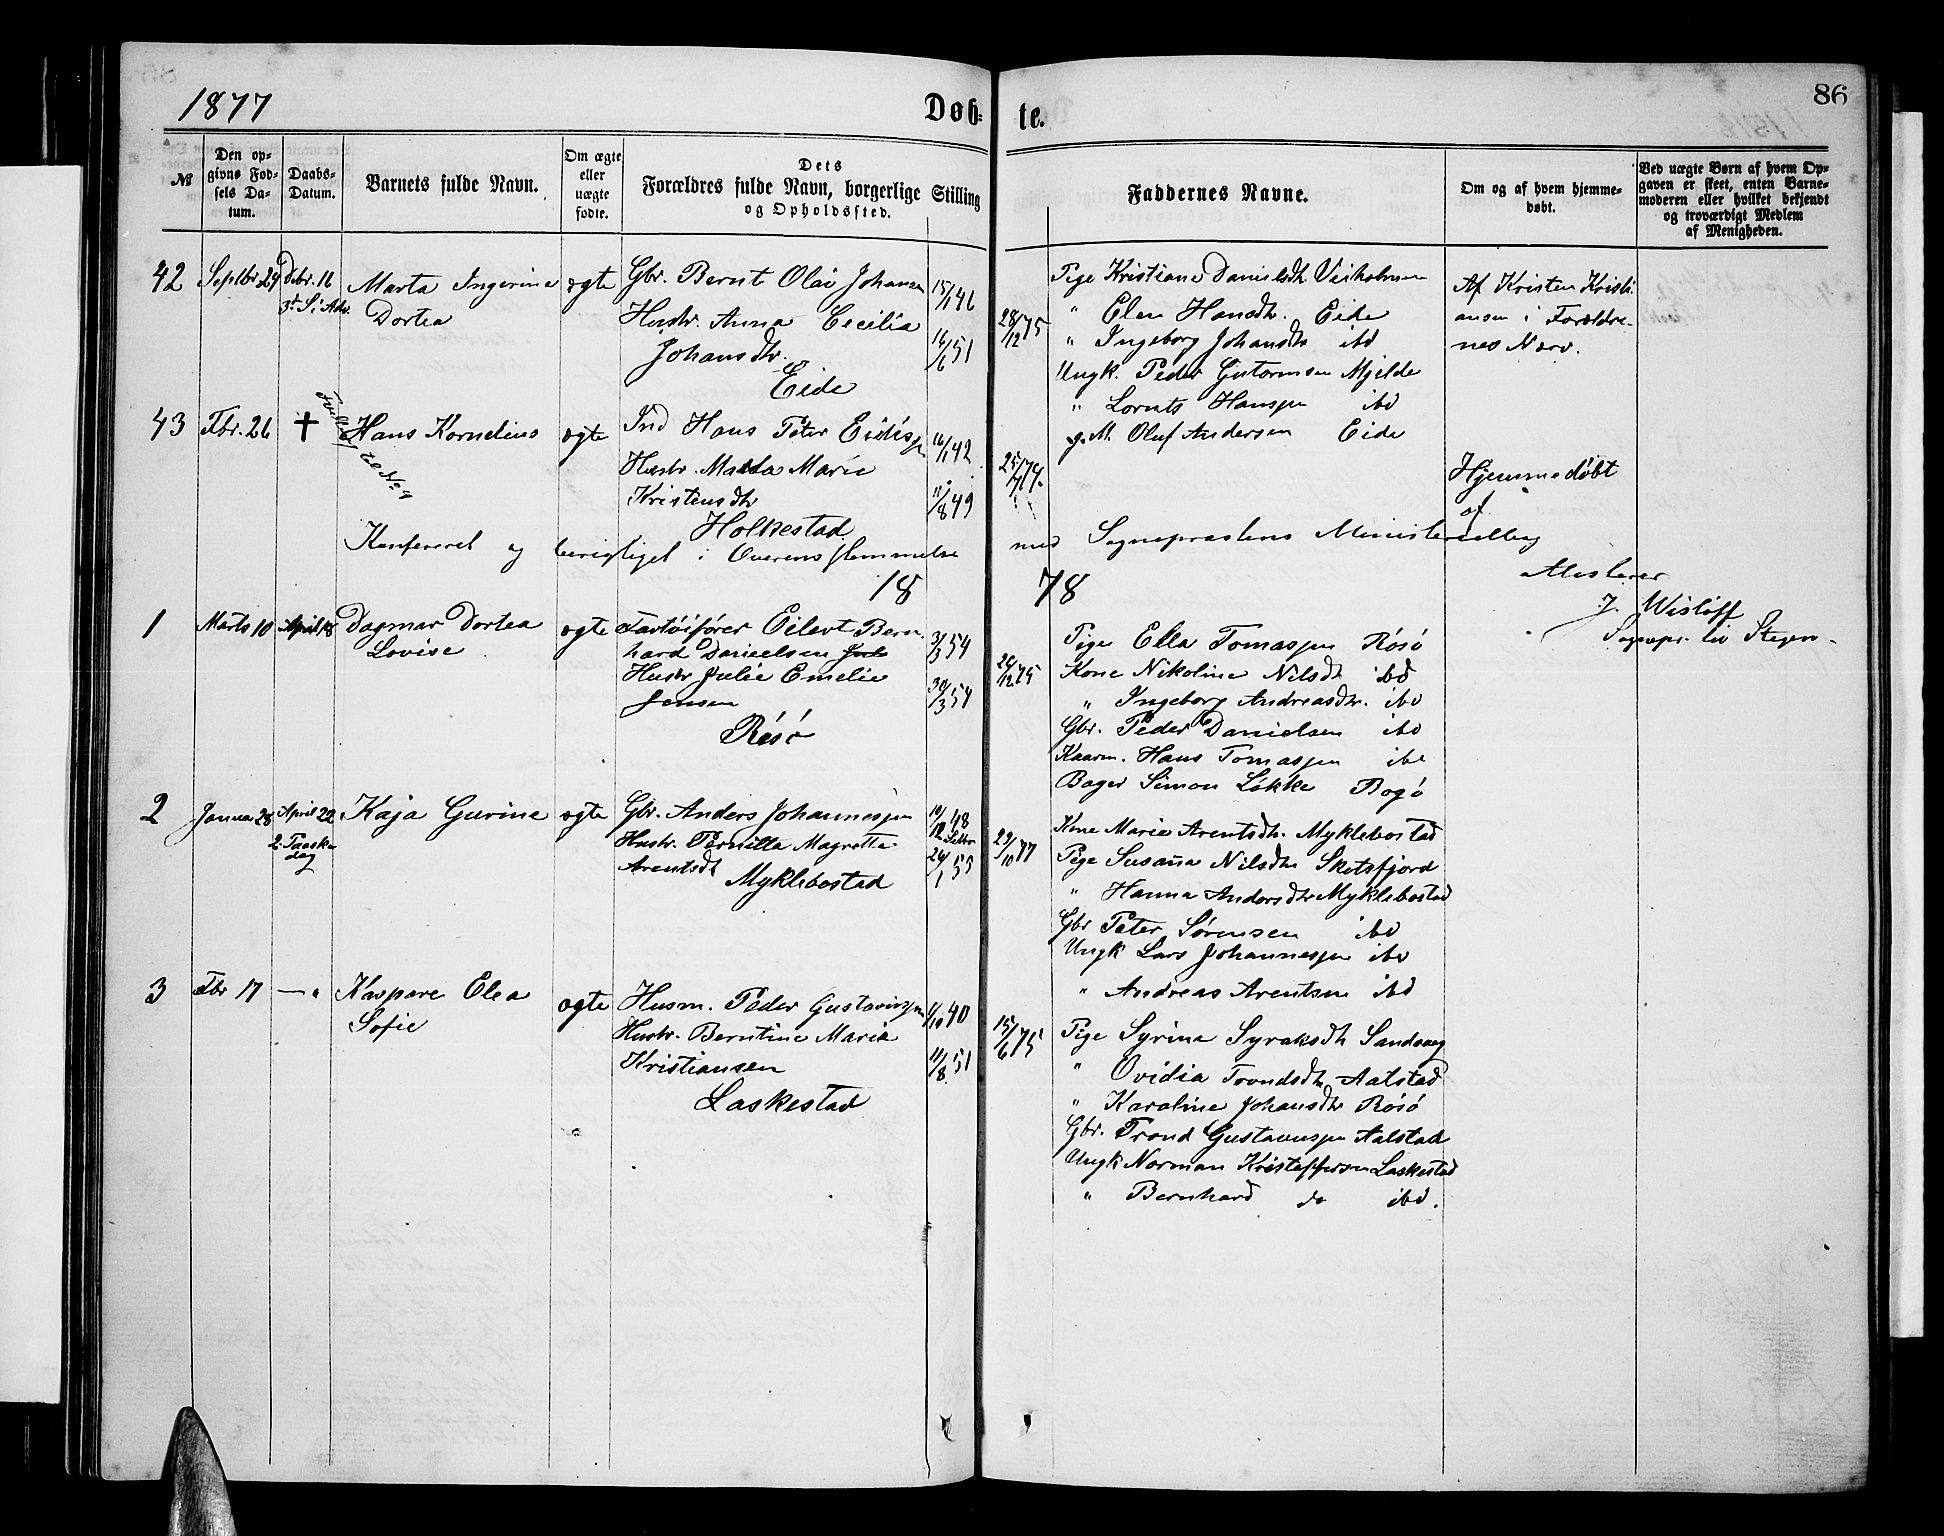 1877
Døb-
te.
86
№
Den op-
givne Fød-
sels Da-
tum.
Daabs-
Datum.
Barnets fulde Navn.
Om ægte
eller
uægte
fødte.
Dets
Forældres fulde Navn, borgerlige Stilling
og Opholdssted.
Faddernes Navne.
Om og af hvem hjemme-
døbt.
Ved uægte Børn af hvem Op-
gaven er skeet, enten Barne-
moderen eller hvilket bekjendt
og troværdigt Medlem
af Menigheden.
42
Septbr 24
Debr. 16
3die S. i Adv.
Marta Ingerine
Dortea
ægte
Gbr. Bernt Olai Johansen
Hustr. Anna Cecilia
Johansdtr.
Eide
15/1 46
16/6 51
28/12 75
Pige Kristiane Danielsdtr
" Elen Hansdtr. Eide
" Ingeborg Johansdtr ibd
Ungk. Peder Gutormsen Mjelde
" Lornts Hanssen ibd
g.M. Oluf Andersen Eide
Af Kristen Kristi-
ansen i Forældre-
nes Nærv.
43
Fbr. 26
†
Hans Kornelius
ægte
Ind Hans Peter Eidissen
Hustr. Marta Marie
Kristensdtr
Holkestad
16/1 42
11/8 49
25/7 74.
Hjemmedøbt
af
Konfereret og berigtiget i Overensstemmelse
med Sognepræstens Ministerialbog
Attesterer
J. Wisløff
Sognepr. til Stegen
18
78
1
Marts 10
April 18
Dagmar Dortea
Lovise
ægte
Fartøifører Eilert Bern
hard Danielsen Jul
Hustr Julie Emelie
Jensen
Røsø
3/3 54
30/3 54
26/12 75
Pige Ella Tomassen Røsø
Kone Nikoline Nilsdtr ibd
" Ingeborg Andreasdtr. ibd
Gbr. Peder Danielsen ibd
Kaarm. Hans Tomassen ibd
Bager Simon Løkke Bogø
2
Januar 28
April 22
2. Paaske
dag
Kaja Gurine
ægte
Gbr. Anders Johannessen
Hustr. Pernilla Magretta
Arentsdtr
Myklebostad
10/12 48
24/1 55
29/10 77
Kone Marie Arentsdtr. Myklebostad
Pige Susanna Nilsdtr Skotsfjord
" Hanna Andersdtr Myklebostad
Gbr Peter Sørensen ibd
Ungk Lars Johannessen ibd
" Andreas Arentsen ibd
3
Fbr 17
— "
Kaspare Elea
Sofie
ægte
Husm. Peder Gustavussen
Hustr. Berntine Maria
Kristiansen
Laskestad
1/10 40
11/8 51
15/6 75
Pige Syrina Syraksdtr Sandvaag
" Ovidia Trondsdtr Aalstad
" Karoline Johansdtr Røsø
Gbr. Trond Gustavussen Aalstad
Ungk Norman Kristoffersen Laskestad
" Bernhard do ibd.